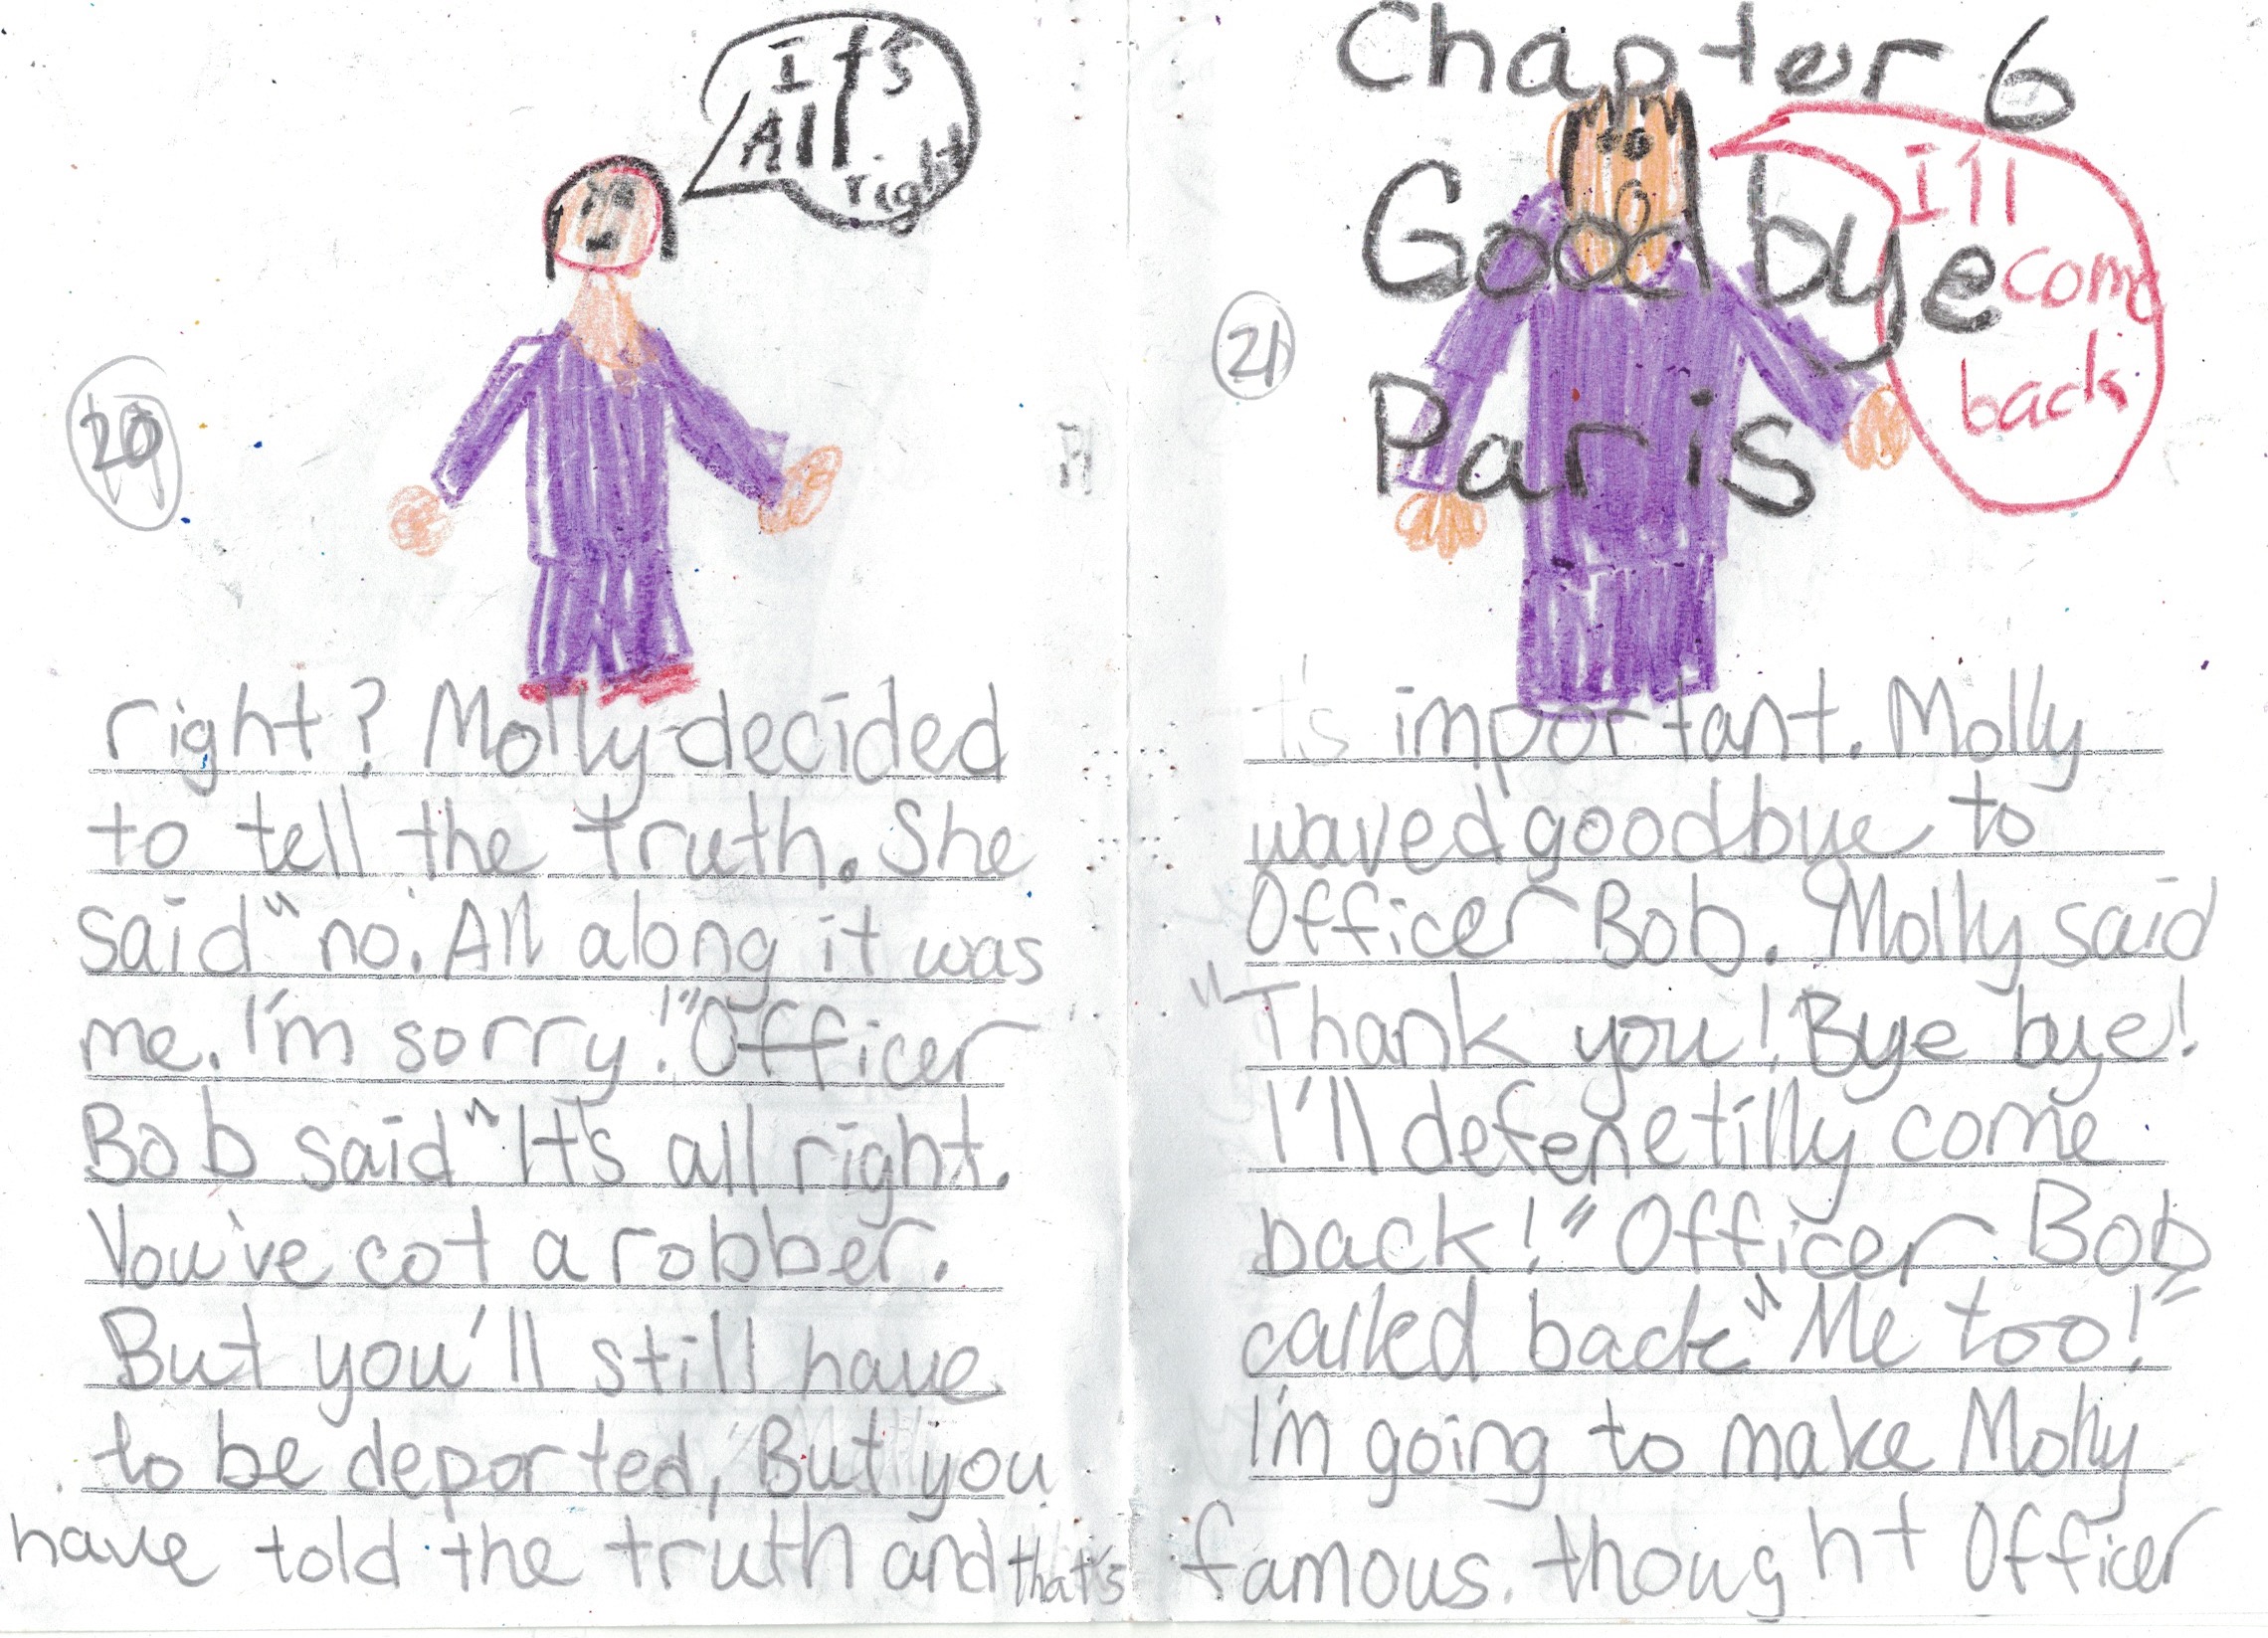 It's
All
right
20
right? Molly decided
to tell the truth. She
said "no. All along it was
me. I'm sorry!" Officer
Bob said "It's all right.
You've cot a robber.
But you'll still have
to be deported, But you
have told the truth and that's
Chapter 6
Goodbye
Paris
I'll
come
back
21
t's important. Molly
waved goodbye to
Officer Bob. Molly said
"Thank you! Bye bye!
I'll defenetilly come
back!" Officer Bob
called back "Me too!"
I'm going to make Molly
famous. thought Officer